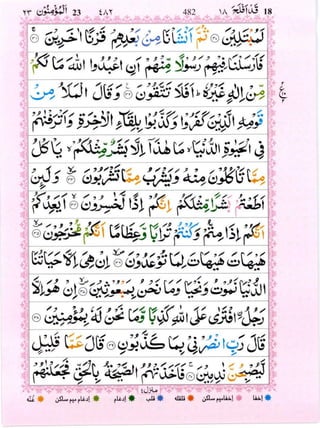 ١٨ قَدْ أَفْلَحَ 18 482 ٤٨٢ 23 اَلْمُؤْمِنُوْن ٢٣
لَمُبْتَلِيْنَ ﴿٣٠﴾ ثُمَّ اَنْشَاْنَا مِنْۢ بَعْدِهِمْ قَرْنًا اٰخَرِيْنَ ﴿٣١﴾
فَاَرْسَلْنَا فِيْهِمْ رَسُوْلًا مِّنْهُمْ اَنِ اعْبُدُوا اللّٰهَ مَا لَكُمْ
مِّنْ اِلٰهٍ غَيْرُهٗ ؕ اَفَلَا تَتَّقُوْنَ ﴿٣٢﴾ وَقَالَ الْمَلَاُ مِنْ
قَوْمِهِ الَّذِيْنَ كَفَرُوْا وَكَذَّبُوْا بِلِقَآءِ الْاٰخِرَةِ وَاَتْرَفْنٰهُمْ
فِي الْحَيٰوةِ الدُّنْيَا ۙ مَا هٰذَاۤ اِلَّا بَشَرٌ مِّثْلُكُمْ ۙ يَاْكُلُ
مِمَّا تَاْكُلُوْنَ مِنْهُ وَيَشْرَبُ مِمَّا تَشْرَبُوْنَ ﴿٣٣﴾ وَلَئِنْ
اَطَعْتُمْ بَشَرًا مِّثْلَكُمْ ۙ اِنَّكُمْ اِذًا لَّخٰسِرُوْنَ ﴿٣٤﴾ اَيَعِدُكُمْ
اَنَّكُمْ اِذَا مِتُّمْ وَكُنْتُمْ تُرَابًا وَّعِظَامًا اَنَّكُمْ مُّخْرَجُوْنَ ﴿٣٥﴾
هَيْهَاتَ هَيْهَاتَ لِمَا تُوْعَدُوْنَ ﴿٣٦﴾ اِنْ هِيَ اِلَّا حَيَاتُنَا
الدُّنْيَا نَمُوْتُ وَنَحْيَا وَمَا نَحْنُ بِمَبْعُوْثِيْنَ ﴿٣٧﴾ اِنْ هُوَ اِلَّا
رَجُلُ ۨ افْتَرٰى عَلَى اللّٰهِ كَذِبًا وَّمَا نَحْنُ لَهٗ بِمُؤْمِنِيْنَ ﴿٣٨﴾
قَالَ رَبِّ انْصُرْنِيْ بِمَا كَذَّبُوْنِ ﴿٣٩﴾ قَالَ عَمَّا قَلِيْلٍ
لَّيُصْبِحُنَّ نٰدِمِيْنَ ﴿٤٠﴾ فَاَخَذَتْهُمُ الصَّيْحَةُ بِالْحَقِّ فَجَعَلْنٰهُمْ
منزل٤
اخفا اخفا میم ساکن قلقله قلب ادغام ادغام میم ساکن غنّه